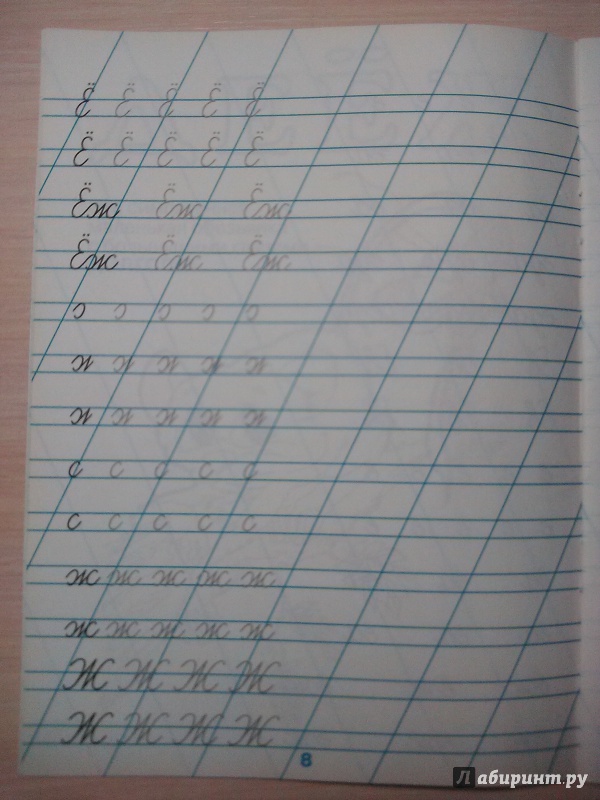 Ё Ё Ё Ё Ё
Ё Ё Ё Ё Ё
Ёж Ёж Ёж
Ёж Ёж Ёж
с с с с с
с с с с с
ж ж ж ж ж
ж ж ж ж ж
Ж Ж Ж Ж
Ж Ж Ж Ж
8
Лабиринт.ру